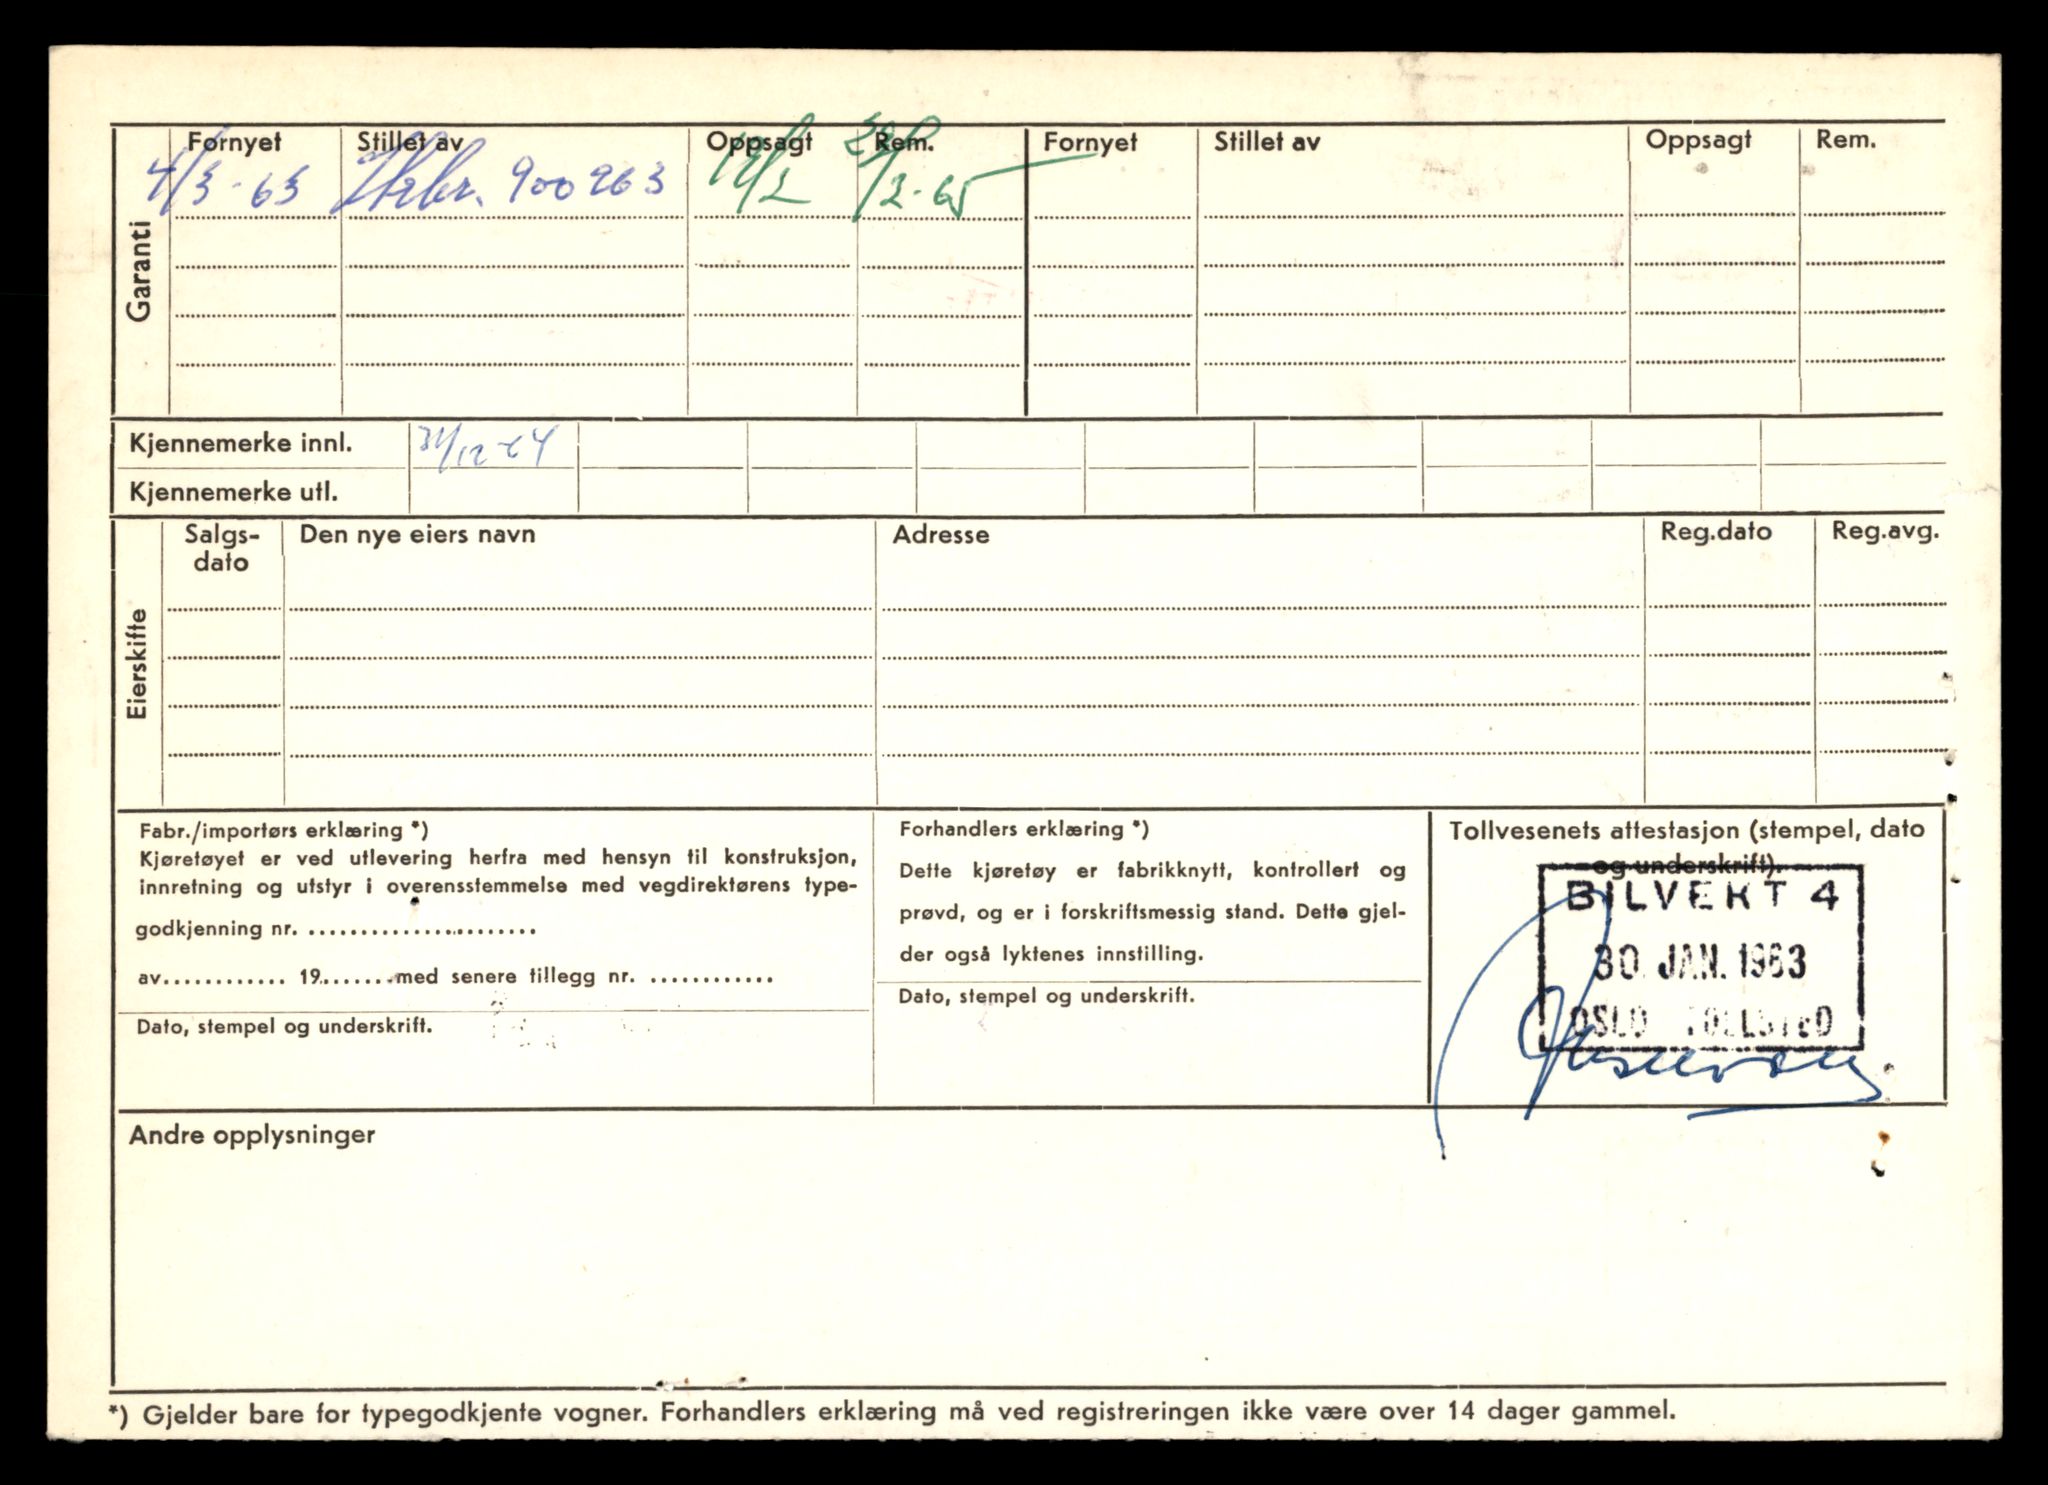 Garanti
Fornyet Stillet av Oppsagt Rem. Fornyet Stillet av Oppsagt Rem.
4/3-63 900263 /2-65
Kjennemerke innl. 31/12-64
Kjennemerke utl.
Eierskifte
Salgs-dato Den nye eiers navn Adresse Reg.dato Reg.avg.
Fabr./importørs erklæring *)
Kjøretøyet er ved utlevering herfra med hensyn til konstruksjon,
innretning og utstyr i overensstemmelse med vegdirektørens type-
godkjenning nr. ......................
av............ 19.......med senere tillegg nr. ............
Dato, stempel og underskrift.
Forhandlers erklæring *)
Dette kjøretøy er fabrikknytt, kontrollert og
prøvd, og er i forskriftsmessig stand. Dette gjel-
der også lyktenes innstilling.
Dato, stempel og underskrift.
Tollvesenets attestasjon (stempel, dato
og underskrift).
BILVEKT 4
30. JAN. 1963
OSLO TOLLSTED
Andre opplysninger
*) Gjelder bare for typegodkjente vogner. Forhandlers erklæring må ved registreringen ikke være over 14 dager gammel.